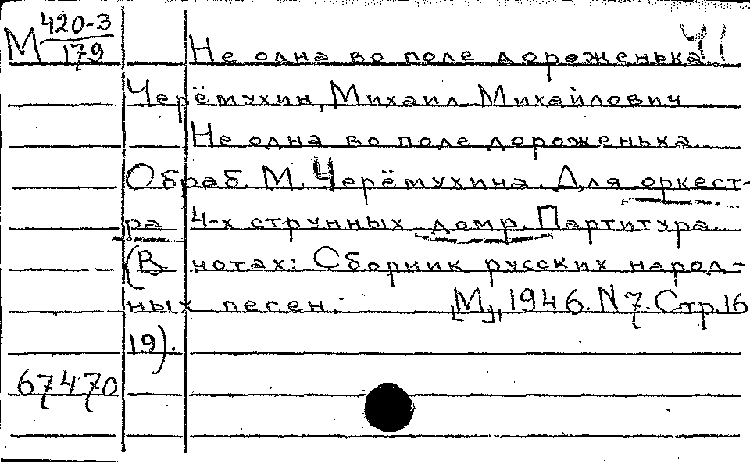 М 420-3
179
Не одна во поле дороженька Ч1
Черёмухин, Михаил Михайлович
Не одна во поле дороженька.
Обраб. М. Черёмухина. Для оркест-
ра 4-х струнных домр. Партитура.
(В нотах: Сборник русских народ-
ных песен. [М], 1946. N7. Стр. 16
19).
67470